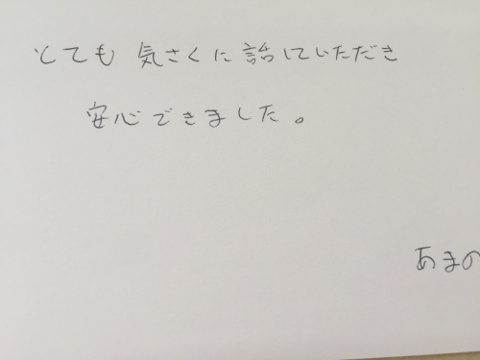 とても 気さくに 話していただき
安心できました。
あまの